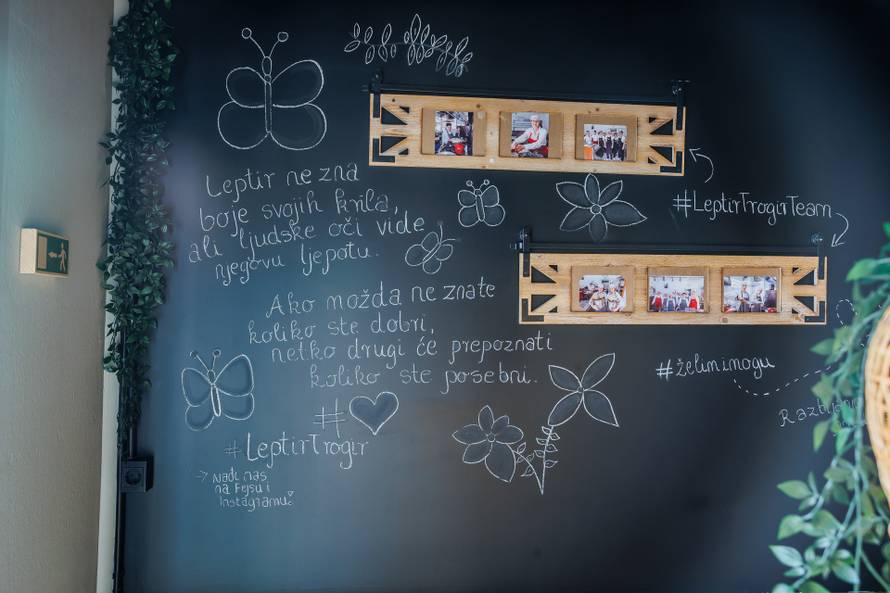 Leptir ne zna
boje svojih krila,
ali ljudske oči vide
njegovu ljepotu.
Ako možda ne znate
koliko ste dobri,
netko drugi će prepoznati
koliko ste posebni.
#
#LeptirTrogir
→ Nađi nas
na Fejsu i
Instagramu!
#LeptirTrogirTeam
#želimimogu